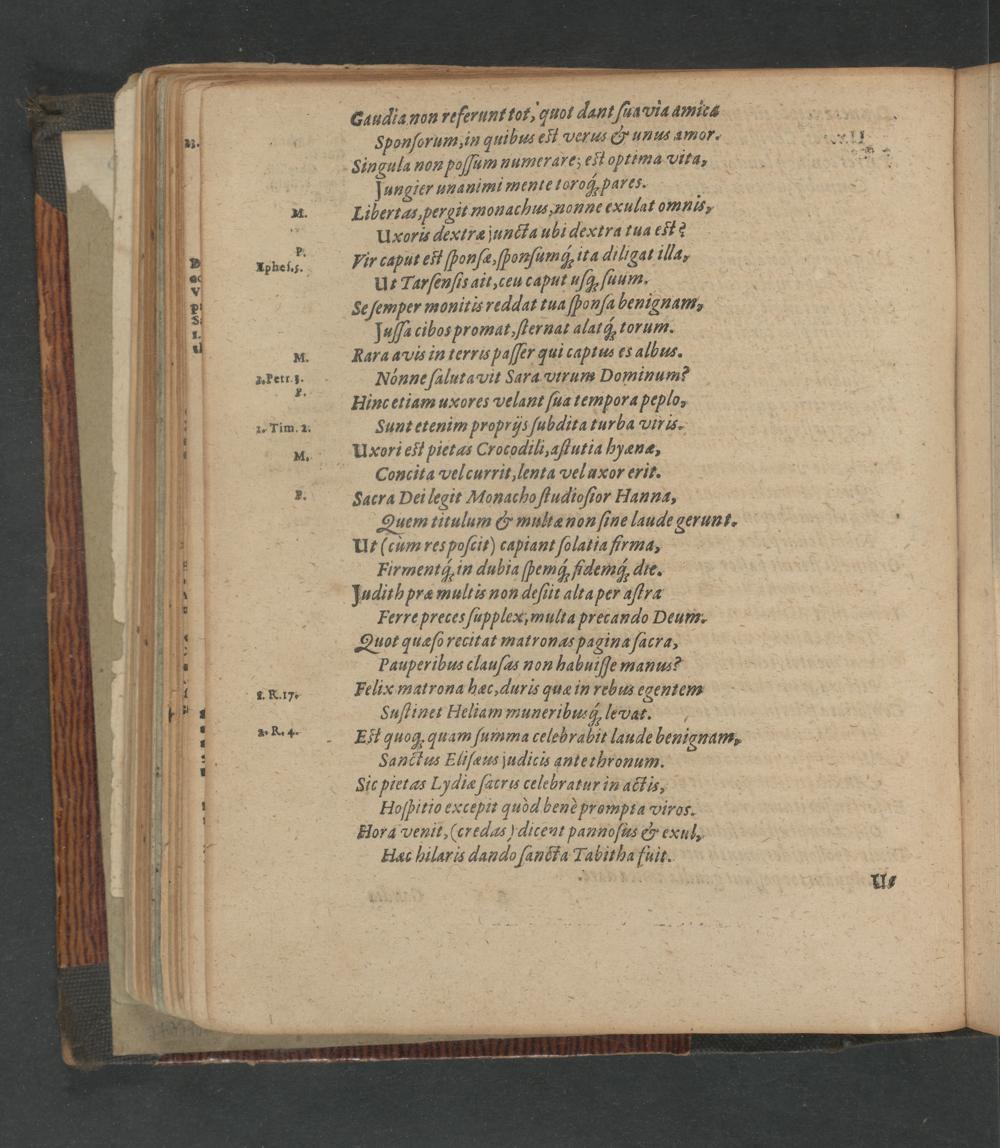 Gaudia non referunt tot, quot dant suavia amicæ
Sponsorum, in quibus est verus & unus amor.
Singula non possum numerare; est optima vita,
Jungier unanimi mente toroq́; pares.
M. Libertas, pergit monachus, nonne exulat omnis,
Uxoris dextræ juncta ubi dextra tua est?
P. Vir caput est sponsæ, sponsumq́; ita diligat illa,
Ephes. 5. Ut Tarsensis ait, ceu caput usq; suum.
Se semper monitis reddat tua sponsa benignam,
Jussa cibos promat, sternat alatq́; torum.
M. Rara avis in terris passer qui captus es albus.
1. Petr. 3. Nónne salutavit Sara virum Dominum?
P. Hinc etiam uxores velant sua tempora peplo,
1. Tim. 2. Sunt etenim proprijs subdita turba viris.
M. Uxori est pietas Crocodili, astutia hyænæ,
Concita vel currit, lenta vel uxor erit.
P. Sacra Dei legit Monacho studiosior Hanna,
Quem titulum & multæ non sine laude gerunt.
Ut (cùm res poscit) capiant solatia firma,
Firmentq́; in dubia spemq́; fidemq́; die.
Judith præ multis non desiit alta per astra
Ferre preces supplex, multa precando Deum.
Quot quæso recitat matronas pagina sacra,
Pauperibus clausas non habuisse manus?
1. R. 17. Felix matrona hæc, duris quæ in rebus egentem
Sustinet Heliam muneribusq́; levat.
2. R. 4. Est quoq; quam summa celebrabit laude benignam,
Sanctus Elisæus judicis ante thronum.
Sic pietas Lydiæ sacris celebratur in actis,
Hospitio excepit quòd benè prompta viros.
Hora venit, (credas) dicent pannosus & exul,
Hæc hilaris dando sancta Tabitha fuit.
Ut